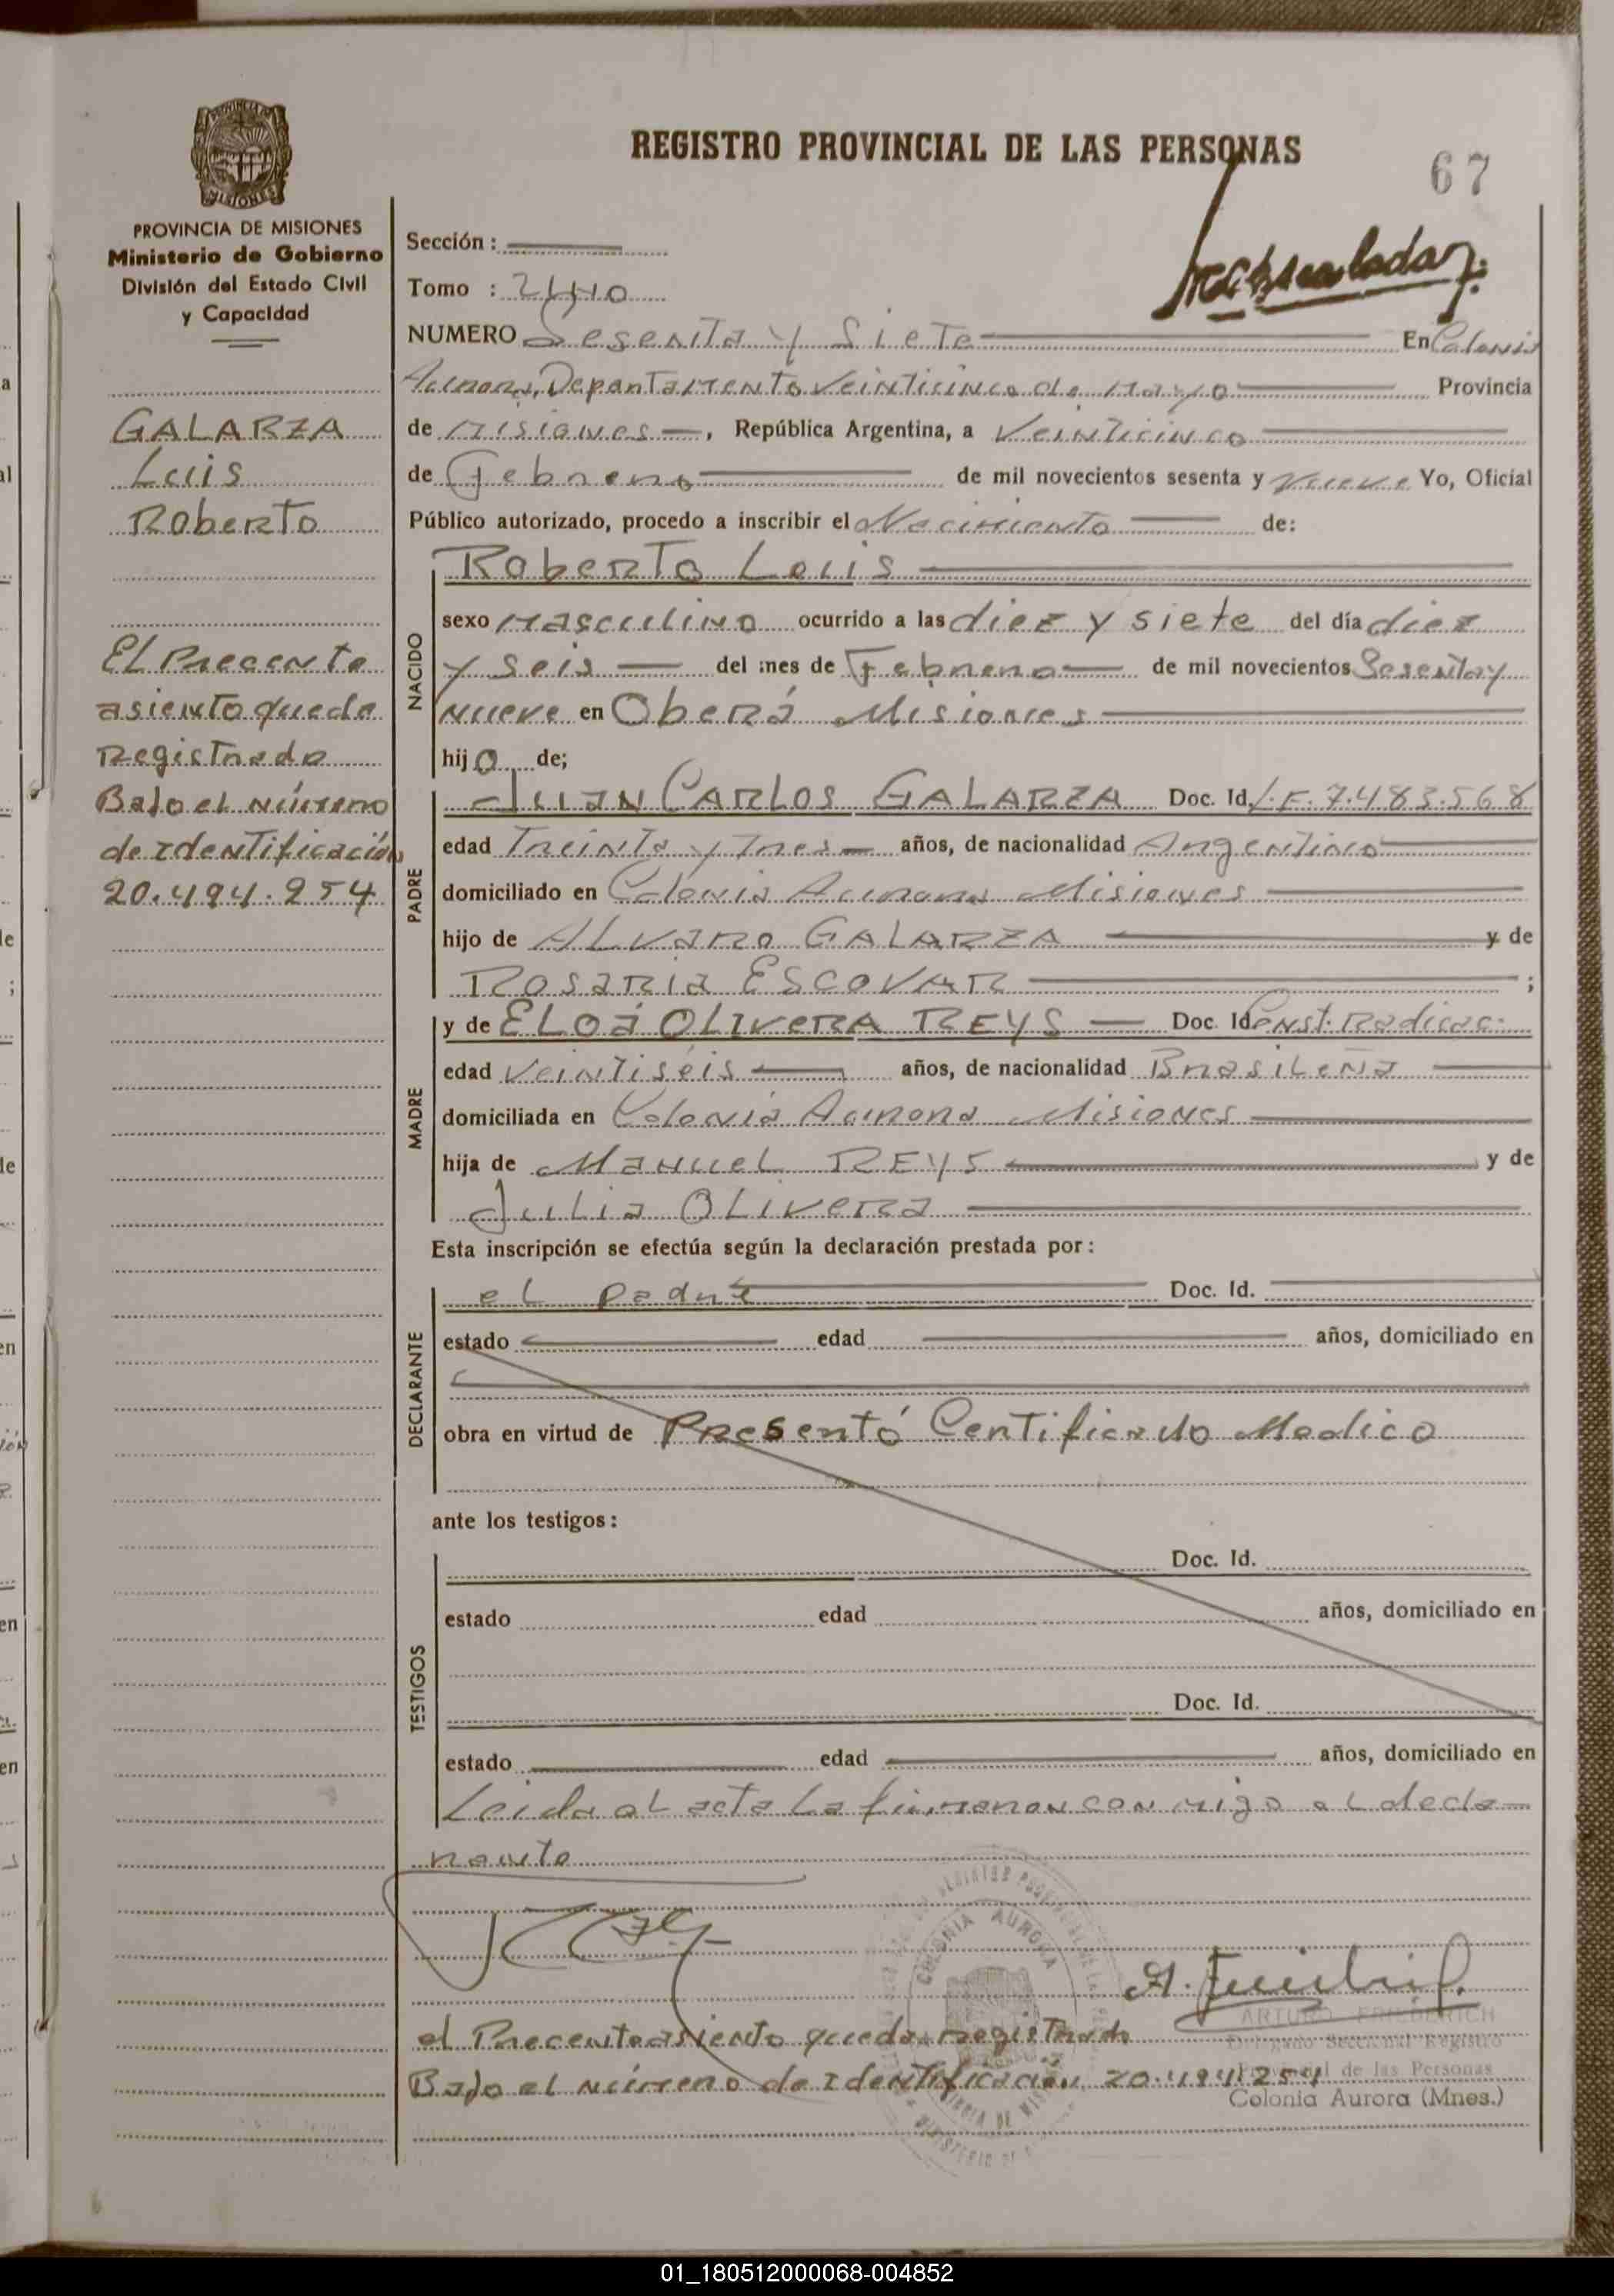 REGISTRO PROVINCIAL DE LAS PERSONAS
67
PROVINCIA DE MISIONES
Ministerio de Gobierno
División del Estado Civil
y Capacidad
GALARZA
Luis
Roberto
El Precente
asiento queda
Registrado
Bajo el número
de Identificación
20.494.254
Sección :
Tomo :
NUMERO Sesenta y Siete En Colonia
Aurora, Departamento Veinticinco de Mayo Provincia
de Misiones, República Argentina, a Veinticinco
de Febrero de mil novecientos sesenta y Nueve Yo, Oficial
Público autorizado, procedo a inscribir el Nacimiento de:
NACIDO
Roberto Luis
sexo Masculino ocurrido a las diez y siete del día diez
y Seis del mes de Febrero de mil novecientos Sesenta y
Nueve en Oberá Misiones
hijo de;
PADRE
Juan CARLOS GALARZA Doc. Id. L.E. 7.483.568
edad Treinta y Tres años, de nacionalidad Argentino
domiciliado en Colonia Aurora Misiones
hijo de Alvaro GALARZA y de
Rosaria Escovar ;
MADRE
y de Eloá OLIVERA REYS Doc. Id. Const. Radicac.
edad Veintiséis años, de nacionalidad Brasileña
domiciliada en Colonia Aurora Misiones
hija de Manuel REYS y de
Julia Olivera
Esta inscripción se efectúa según la declaración prestada por :
DECLARANTE
el padre Doc. Id.
estado edad años, domiciliado en
obra en virtud de Presentó Certificado Medico
ante los testigos :
TESTIGOS
Doc. Id.
estado edad años, domiciliado en
Doc. Id.
estado edad años, domiciliado en
Leída al acta la firmaron con migo el decla-
rante
COLONIA AURORA
ARTURO FRIEDERICH
Delegado Seccional Registro
Provincial de las Personas
Colonia Aurora (Mnes.)
el Precente asiento queda registrado
Bajo el número de Identificación 20.494.254
01_180512000068-004852